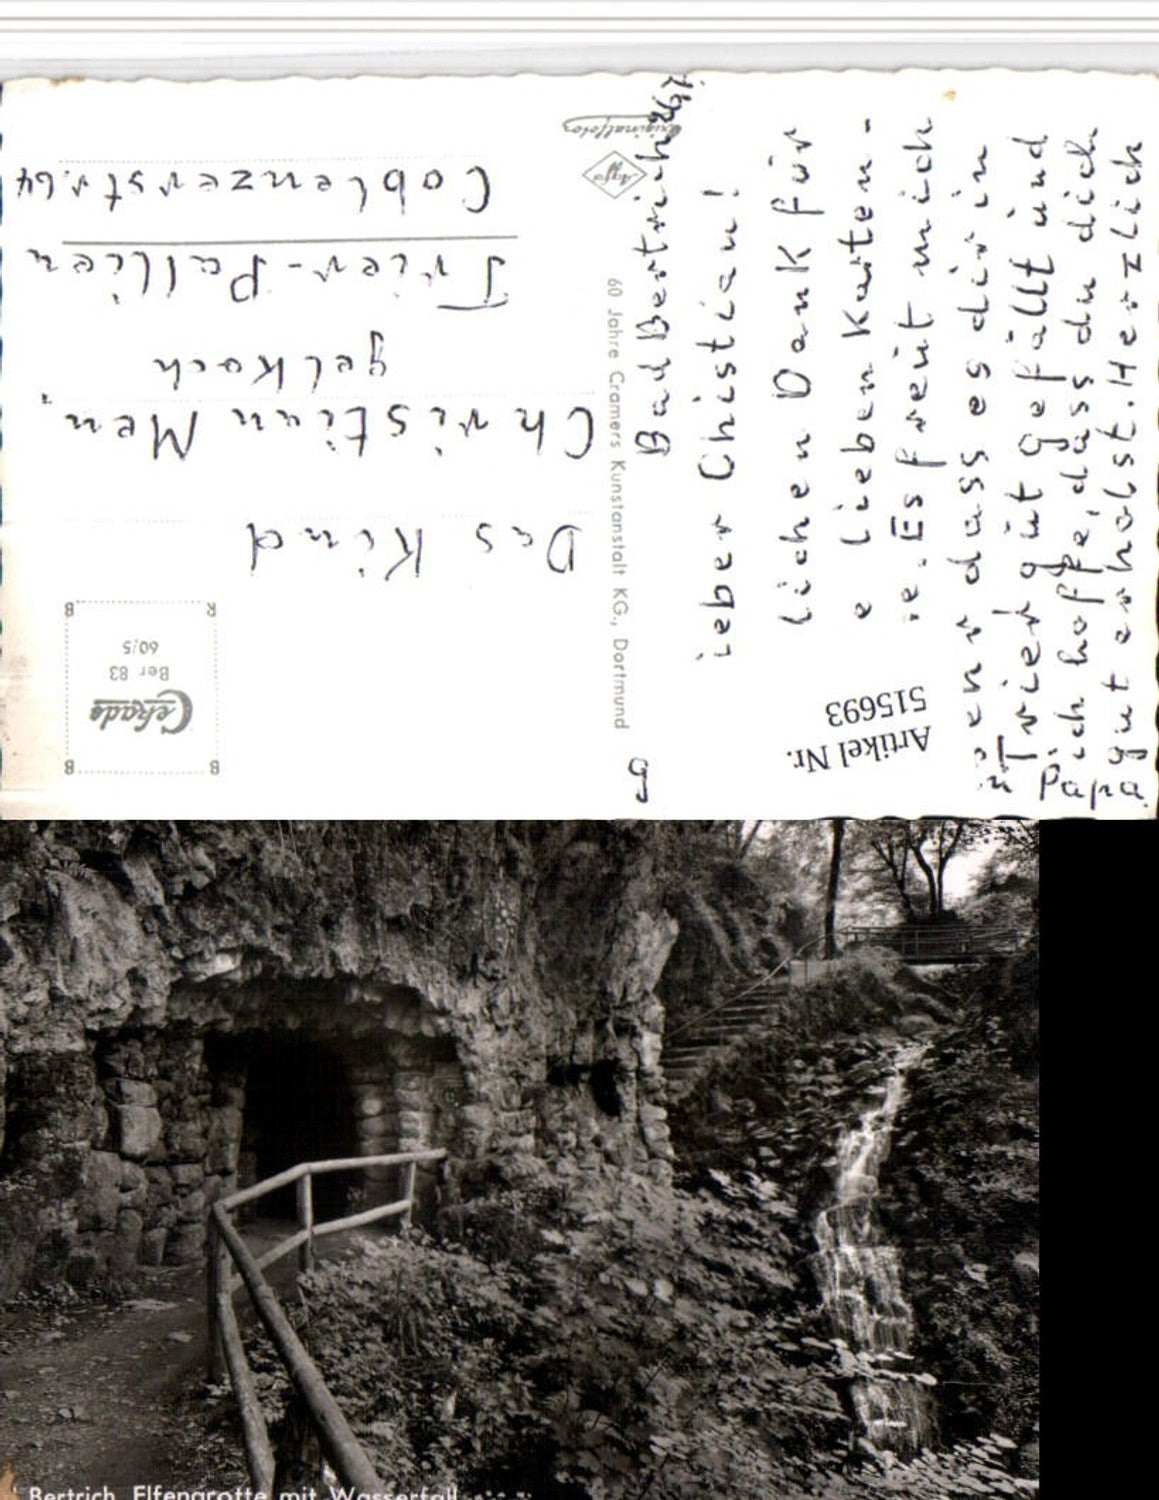 Bad Bertrich
ieber Christian!
lichen Dank für
e lieben Karten-
ie. Es freut mich
sehr dass es dir in
Trier gut gefällt und
ich hoffe, dass du dich
gut erholst. Herzlich
Papa
60 Jahre Cramers Kunstanstalt KG., Dortmund
Originalfoto
Agfa
Cekade
Ber 83
60/5
R B
B B
Das Kind
Christian Men,
gelkoch
Trier-Pallien
Coblenzerstr. 64
Artikel Nr.
515693
Bertrich, Elfengrotte mit Wasserfall